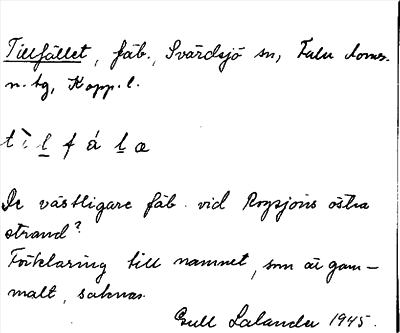 Tillfället, fäb., Svärdsjö sn, Falu doms.
n. tg, Kopp. l.
t ì l f á l æ
De västligare fäb. vid Rogsjöns östra
strand?
Förklaring till namnet, som är gam-
malt, saknas.
Gull Lalander 1945.